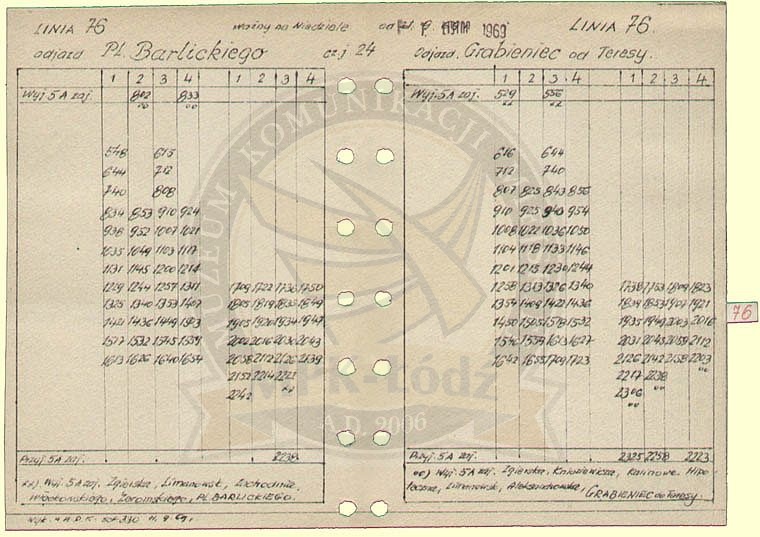 LINIA 76 ważny na Niedziele od 1969 LINIA 76.
odjazd Pl. Barlickiego cz.j 24 Odjazd. Grabieniec od Teresy.
1 2 3 4 1 2 3 4 1 2 3 4 1 2 3 4
Wyj. 5A zaj. 802 833 Wyj. 5A zaj. 529 556
548 615 616 644
644 712 712 740
740 808 807 825 843 856
834 853 910 924 910 925 943 954
938 952 1007 1021 1008 1022 1036 1050
1035 1049 1103 1117 1104 1118 1133 1146
1131 1145 1200 1214 1201 1215 1230 1244
1229 1244 1257 1311 1709 1722 1736 1750 1258 1313 1326 1340 1738 1753 1809 1823
1325 1340 1353 1407 1805 1819 1835 1849 1354 1409 1422 1436 1839 1853 1907 1921
1421 1436 1449 1503 1905 1920 1934 1947 1450 1505 1518 1532 1935 1949 2003 2016
1517 1532 1545 1559 2002 2016 2030 2043 1546 1559 1613 1627 2031 2045 2059 2112
1613 1626 1640 1654 2058 2112 2126 2139 1642 1655 1709 1723 2126 2142 2158 2203
2152 2214 2221 2217 2238
2242 2306
Przyj. 5A zaj. 2238 Przyj. 5A zaj. 2325 2258 2223
xx) Wyj. 5A zaj. Zgierska, Limanowsk, Zachodnia,
Więckowskiego, Żeromskiego, Pl. BARLICKIEGO.
oo) Wyj. 5A zaj. Zgierska, Kniaziewicza, Kalinowa Hipo-
teczna, Limanowsk, Aleksandrowska, GRABIENIEC do Teresy.
76
MUZEUM KOMUNIKACJI
MPK-Łódź
A.D. 2006